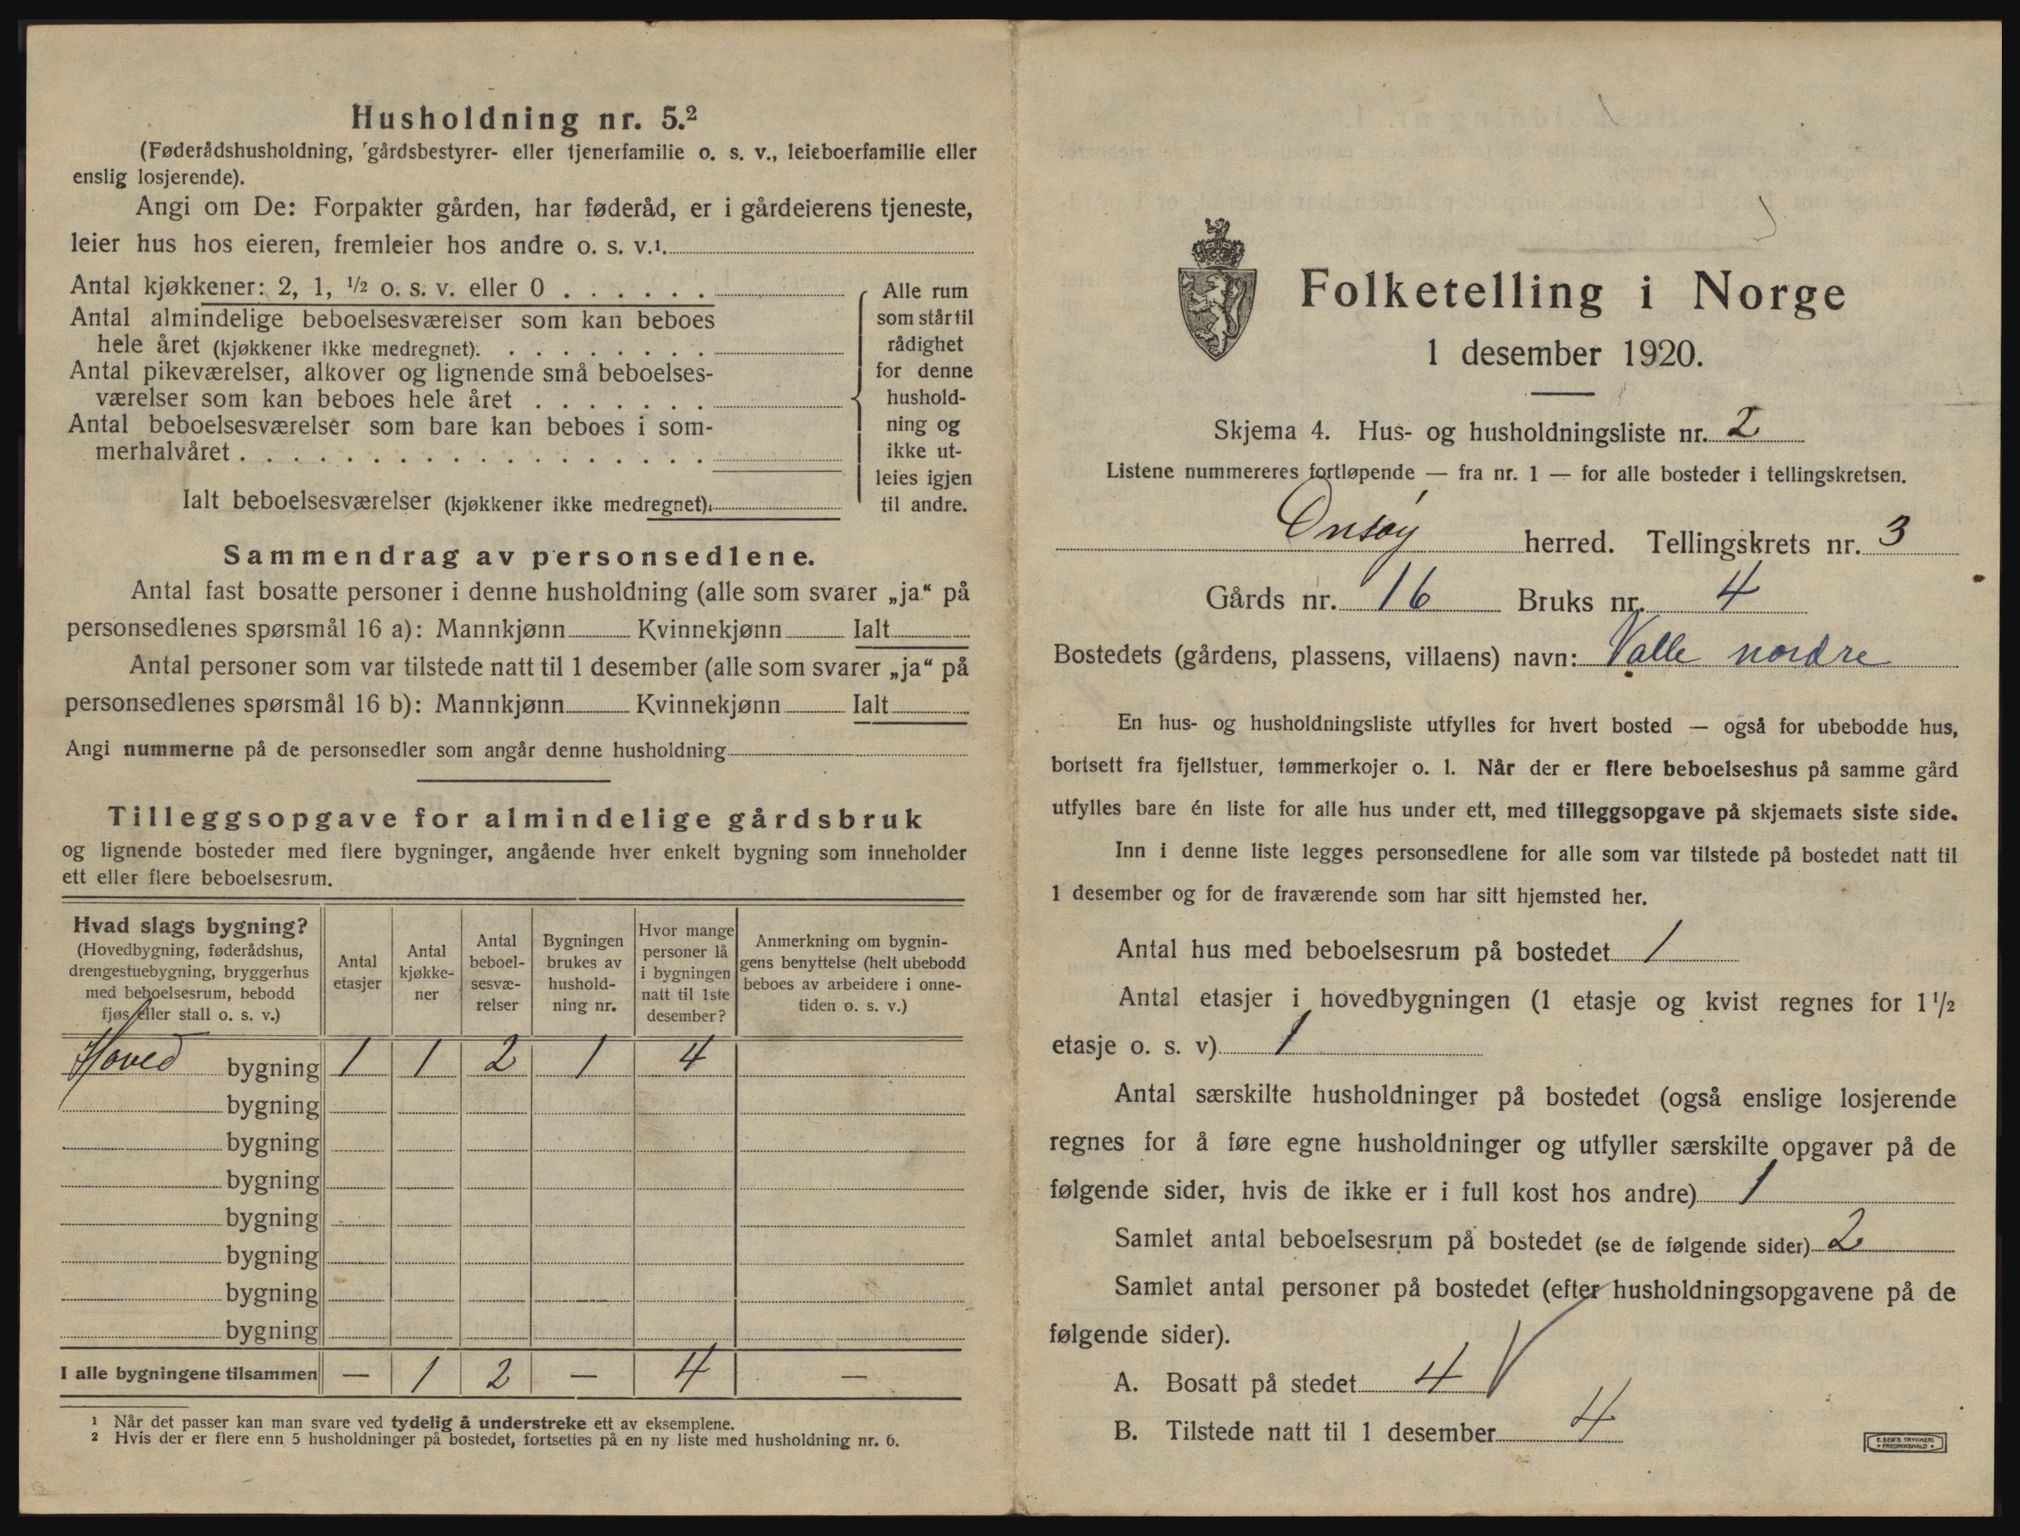 Husholdning nr. 5.²
(Føderådshusholdning, gårdsbestyrer- eller tjenerfamilie o. s. v., leieboerfamilie eller
enslig losjerende).
Angi om De: Forpakter gården, har føderåd, er i gårdeierens tjeneste,
leier hus hos eieren, fremleier hos andre o. s. v.¹.
Antal kjøkkener: 2, 1, ½ o. s. v. eller 0 . . . . . .
Antal almindelige beboelsesværelser som kan beboes
hele året (kjøkkener ikke medregnet). . . . . . . . .
Antal pikeværelser, alkover og lignende små beboelses-
værelser som kan beboes hele året . . . . . . .
Antal beboelsesværelser som bare kan beboes i som-
merhalvåret . . . . . . . . . . . . . . . . . .
Ialt beboelsesværelser (kjøkkener ikke medregnet).
Alle rum
som står til
rådighet
for denne
hushold-
ning og
ikke ut-
leies igjen
til andre.
Sammendrag av personsedlene.
Antal fast bosatte personer i denne husholdning (alle som svarer „ja“ på
personsedlenes spørsmål 16 a): Mannkjønn Kvinnekjønn Ialt
Antal personer som var tilstede natt til 1 desember (alle som svarer „ja“ på
personsedlenes spørsmål 16 b): Mannkjønn Kvinnekjønn Ialt
Angi nummerne på de personsedler som angår denne husholdning
Tilleggsopgave for almindelige gårdsbruk
og lignende bosteder med flere bygninger, angående hver enkelt bygning som inneholder
ett eller flere beboelsesrum.
Hvad slags bygning?
(Hovedbygning, føderådshus,
drengestuebygning, bryggerhus
med beboelsesrum, bebodd
fjøs eller stall o. s. v.)
Antal
etasjer
Antal
kjøkke-
ner
Antal
beboel-
sesvæ-
relser
Bygningen
brukes av
hushold-
ning nr.
Hvor mange
personer lå
i bygningen
natt til 1ste
desember?
Anmerkning om bygnin-
gens benyttelse (helt ubebodd
beboes av arbeidere i onne-
tiden o. s. v.)
Hoved bygning 1 1 2 1 4
bygning
bygning
bygning
bygning
bygning
bygning
bygning
I alle bygningene tilsammen — 1 2 — 4 —
¹ Når det passer kan man svare ved tydelig å understreke ett av eksemplene.
² Hvis der er flere enn 5 husholdninger på bostedet, fortsettes på en ny liste med husholdning nr. 6.
Folketelling i Norge
1 desember 1920.
Skjema 4. Hus- og husholdningsliste nr. 2
Listene nummereres fortløpende — fra nr. 1 — for alle bosteder i tellingskretsen.
Onsøy herred. Tellingskrets nr. 3
Gårds nr. 16 Bruks nr. 4
Bostedets (gårdens, plassens, villaens) navn: Valle nordre
En hus- og husholdningsliste utfylles for hvert bosted — også for ubebodde hus,
bortsett fra fjellstuer, tømmerkojer o. l. Når der er flere beboelseshus på samme gård
utfylles bare én liste for alle hus under ett, med tilleggsopgave på skjemaets siste side.
Inn i denne liste legges personsedlene for alle som var tilstede på bostedet natt til
1 desember og for de fraværende som har sitt hjemsted her.
Antal hus med beboelsesrum på bostedet 1
Antal etasjer i hovedbygningen (1 etasje og kvist regnes for 1½
etasje o. s. v) 1
Antal særskilte husholdninger på bostedet (også enslige losjerende
regnes for å føre egne husholdninger og utfyller særskilte opgaver på de
følgende sider, hvis de ikke er i full kost hos andre) 1
Samlet antal beboelsesrum på bostedet (se de følgende sider) 2
Samlet antal personer på bostedet (efter husholdningsopgavene på de
følgende sider).
A. Bosatt på stedet 4
B. Tilstede natt til 1 desember 4
E. SEM'S TRYKKERI
• FREDRIKSHALD •